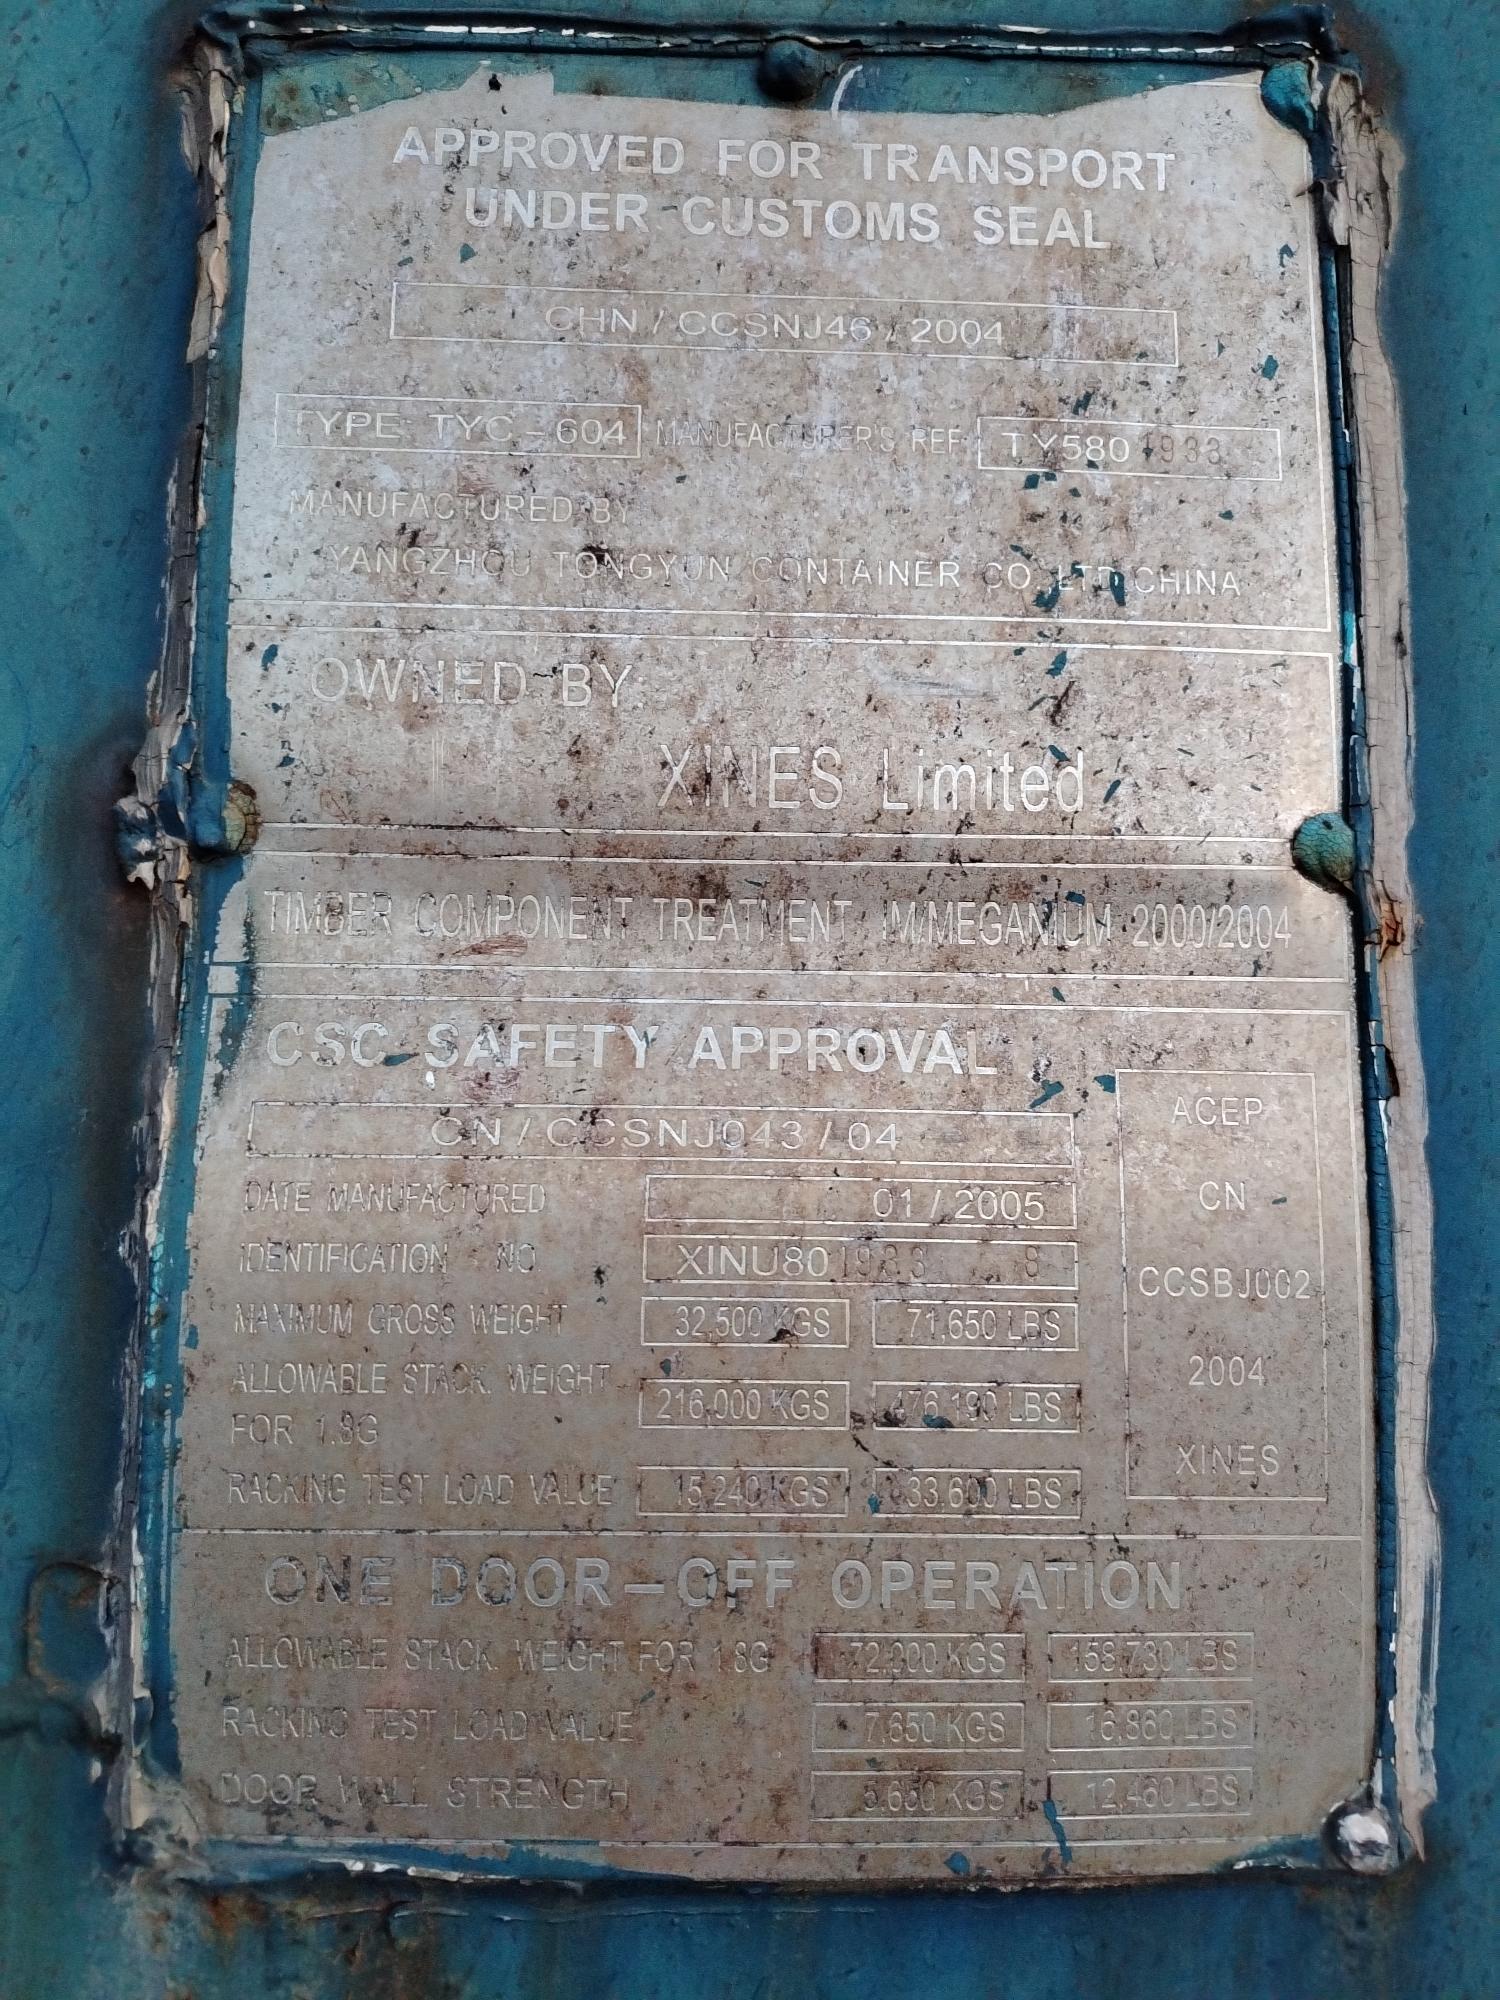 APPROVED FOR TRANSPORT
UNDER CUSTOMS SEAL
CHN / CCSNJ46 / 2004
TYPE: TYC - 604 MANUFACTURER'S REF TY580 1933
MANUFACTURED BY
YANGZHOU TONGYUN CONTAINER CO.,LTD CHINA
OWNED BY:
XINES Limited
TIMBER COMPONENT TREATMENT IM/MEGANIUM 2000/2004
CSC SAFETY APPROVAL
CN / CCSNJ043 / 04
DATE MANUFACTURED 01 / 2005
IDENTIFICATION NO. XINU80 1933 8
MAXIMUM GROSS WEIGHT 32,500 KGS 71,650 LBS
ALLOWABLE STACK. WEIGHT
FOR 1.8G 216,000 KGS 476,190 LBS
RACKING TEST LOAD VALUE 15,240 KGS 33,600 LBS
ACEP
CN
CCSBJ002
2004
XINES
ONE DOOR-OFF OPERATION
ALLOWABLE STACK. WEIGHT FOR 1.8G 72,000 KGS 158,730 LBS
RACKING TEST LOAD VALUE 7,650 KGS 16,860 LBS
DOOR WALL STRENGTH 5,650 KGS 12,460 LBS